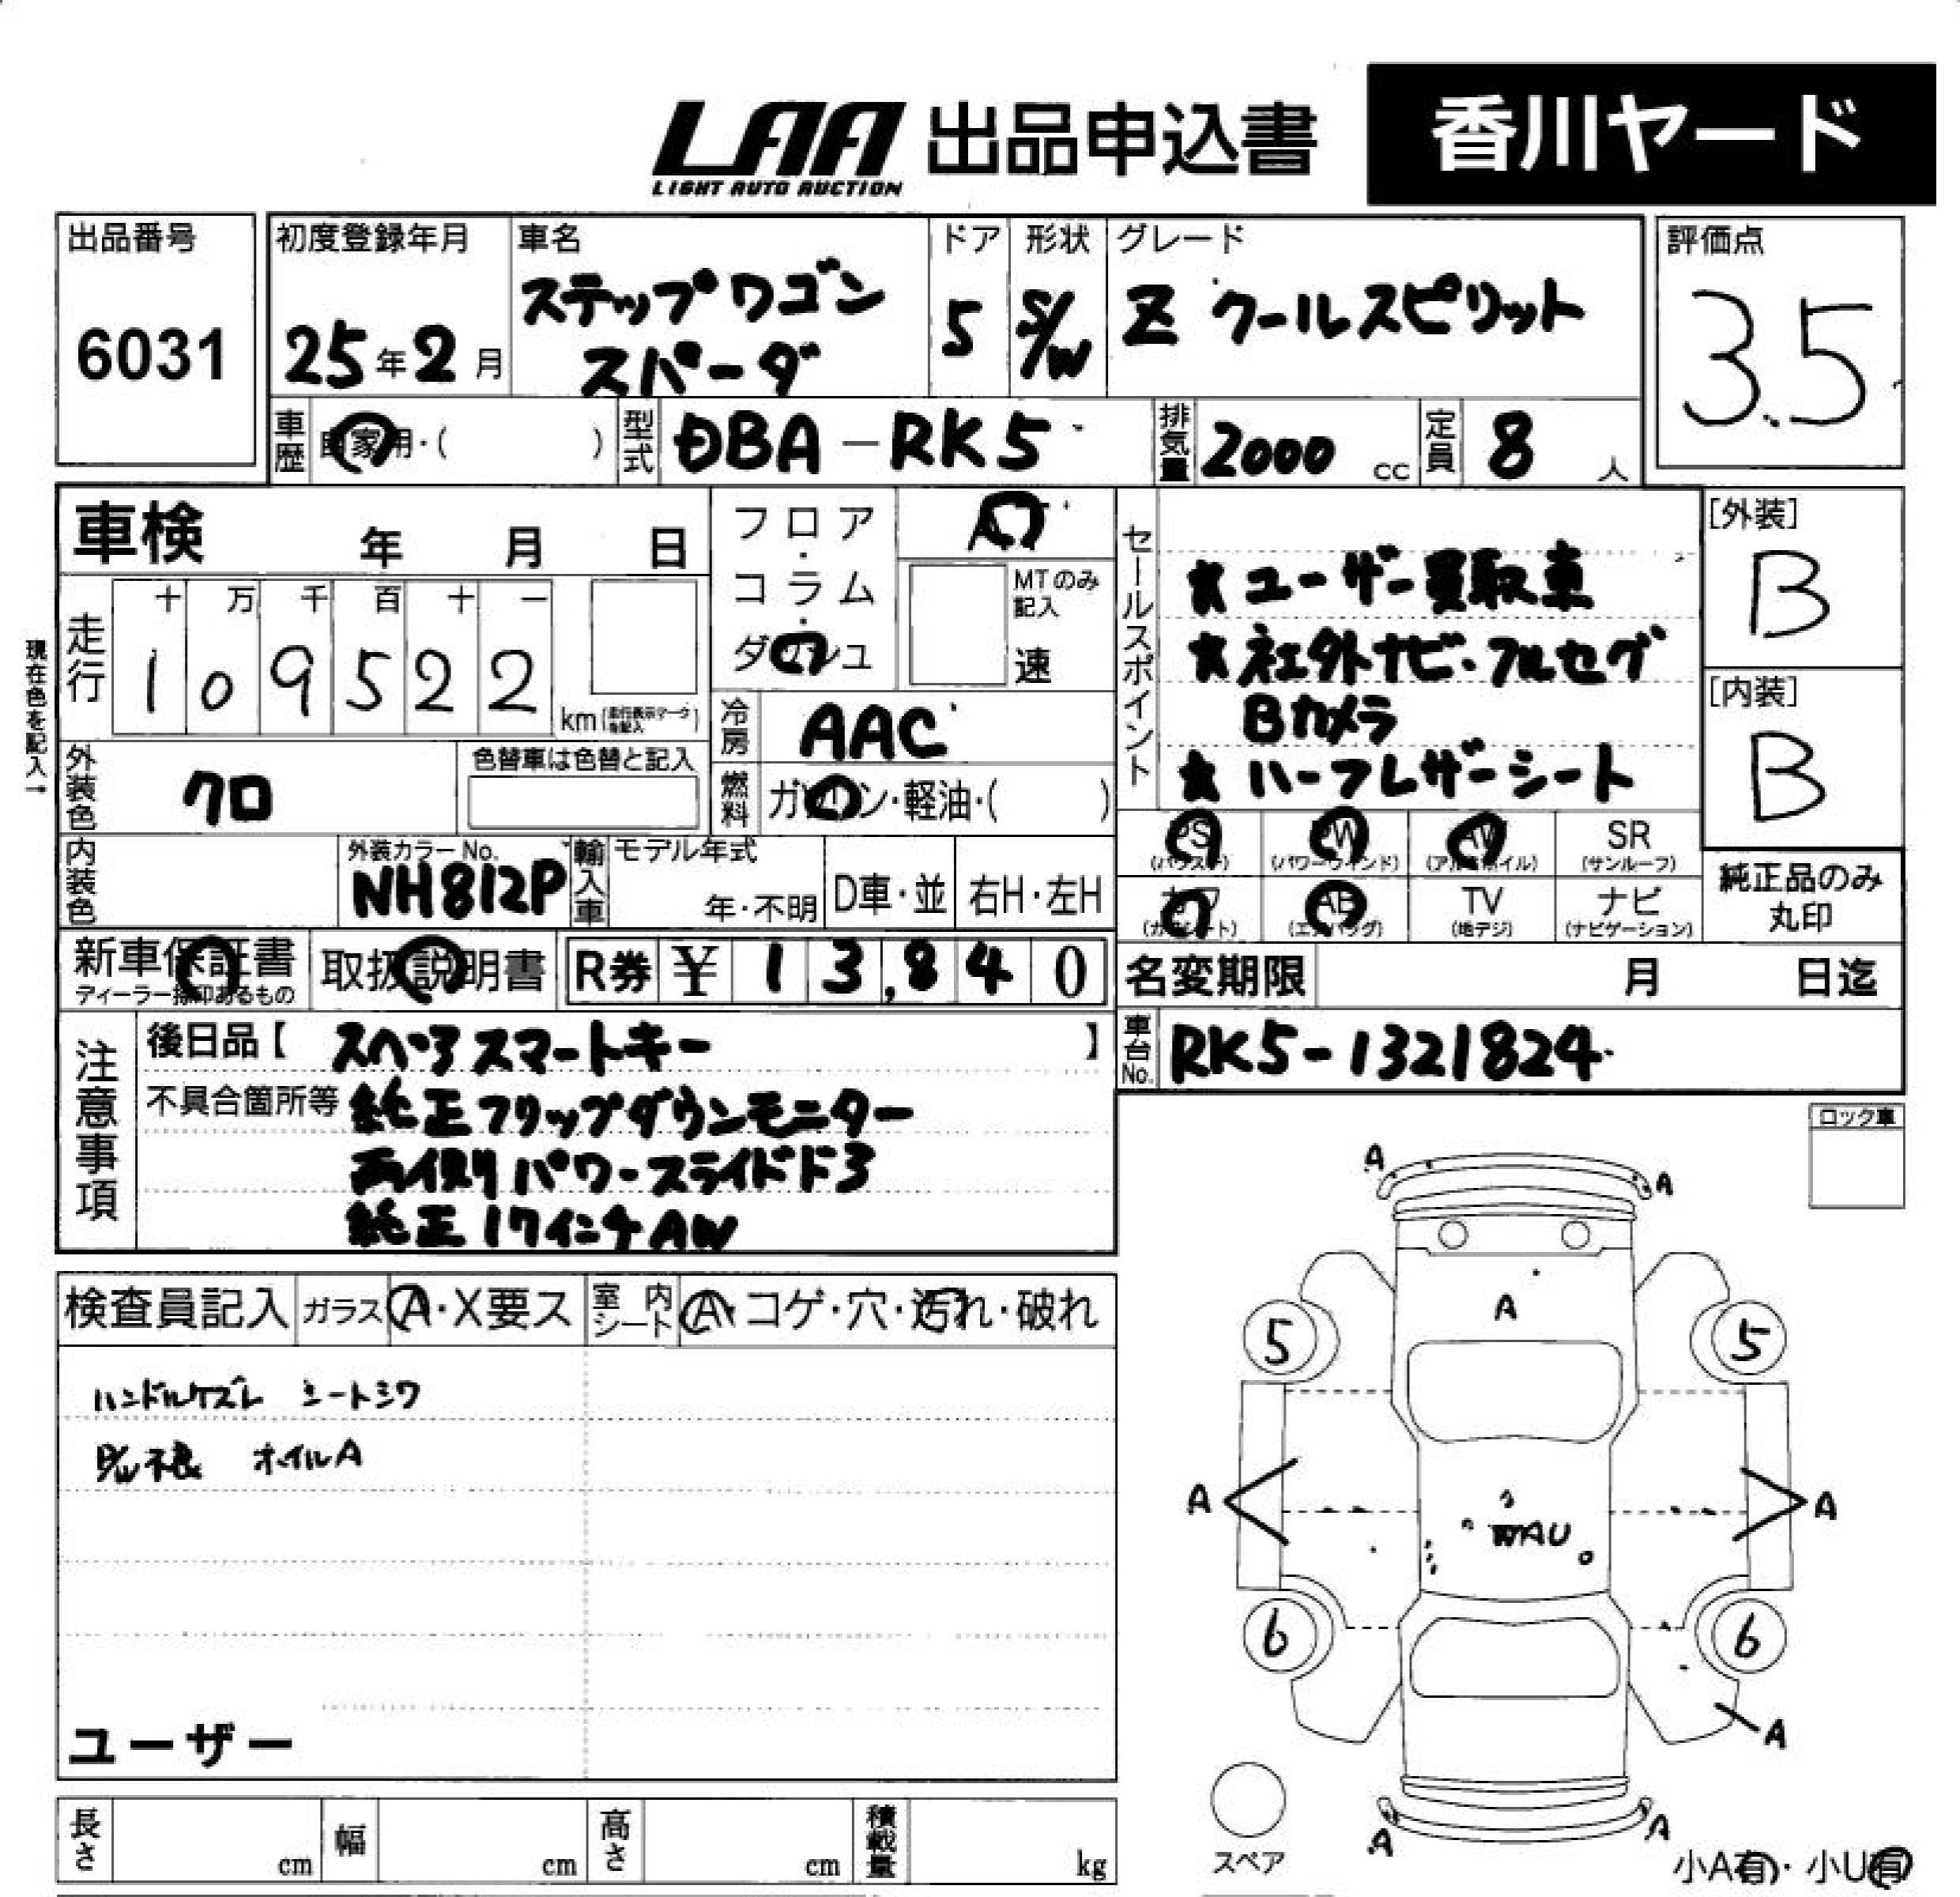 LAA 出品申込書 香川ヤード
LIGHT AUTO AUCTION
出品番号
6031
初度登録年月
25年2月
車名
ステップワゴン
スパーダ
ドア
5
形状
S/W
グレード
Z クールスピリット
評価点
3.5
車歴 自家用・( )
型式 DBA-RK5
排気量 2000 cc
定員 8 人
車検 年 月 日
現在色を記入→
走行
十 万 千 百 十 一
1 0 9 5 2 2 km
フロア・コラム・ダッシュ
AT
MTのみ記入
速
冷房 AAC
燃料 ガソリン・軽油・( )
外装色 クロ
色替車は色替と記入
内装色
外装カラーNo.
NH812P
輸入車
モデル年式
年・不明
D車・並
右H・左H
セールスポイント
★ユーザー買取車
★社外ナビ・フルセグ
Bカメラ
★ハーフレザーシート
[外装]
B
[内装]
B
PS PW AW SR
(パワステ) (パワーウィンド) (アルミホイル) (サンルーフ)
カワ AB TV ナビ
(カワシート) (エアバッグ) (地デジ) (ナビゲーション)
純正品のみ
丸印
新車保証書
ディーラー捺印あるもの
取扱説明書
R券 ¥ 13,840
名変期限 月 日迄
車台No. RK5-1321824
注意事項
後日品【 スペアスマートキー 】
不具合箇所等 純正フリップダウンモニター
両側パワースライドドア
純正17インチAW
ロック車
検査員記入 ガラス A・X要ス 室内シート A・コゲ・穴・汚れ・破れ
ハンドルケズレ シートシワ
オイルA
ユーザー
A A
A
5 5
A A
WAU
6 6
A
A A
スペア
小A有・小U有
長さ cm 幅 cm 高さ cm 積載量 kg